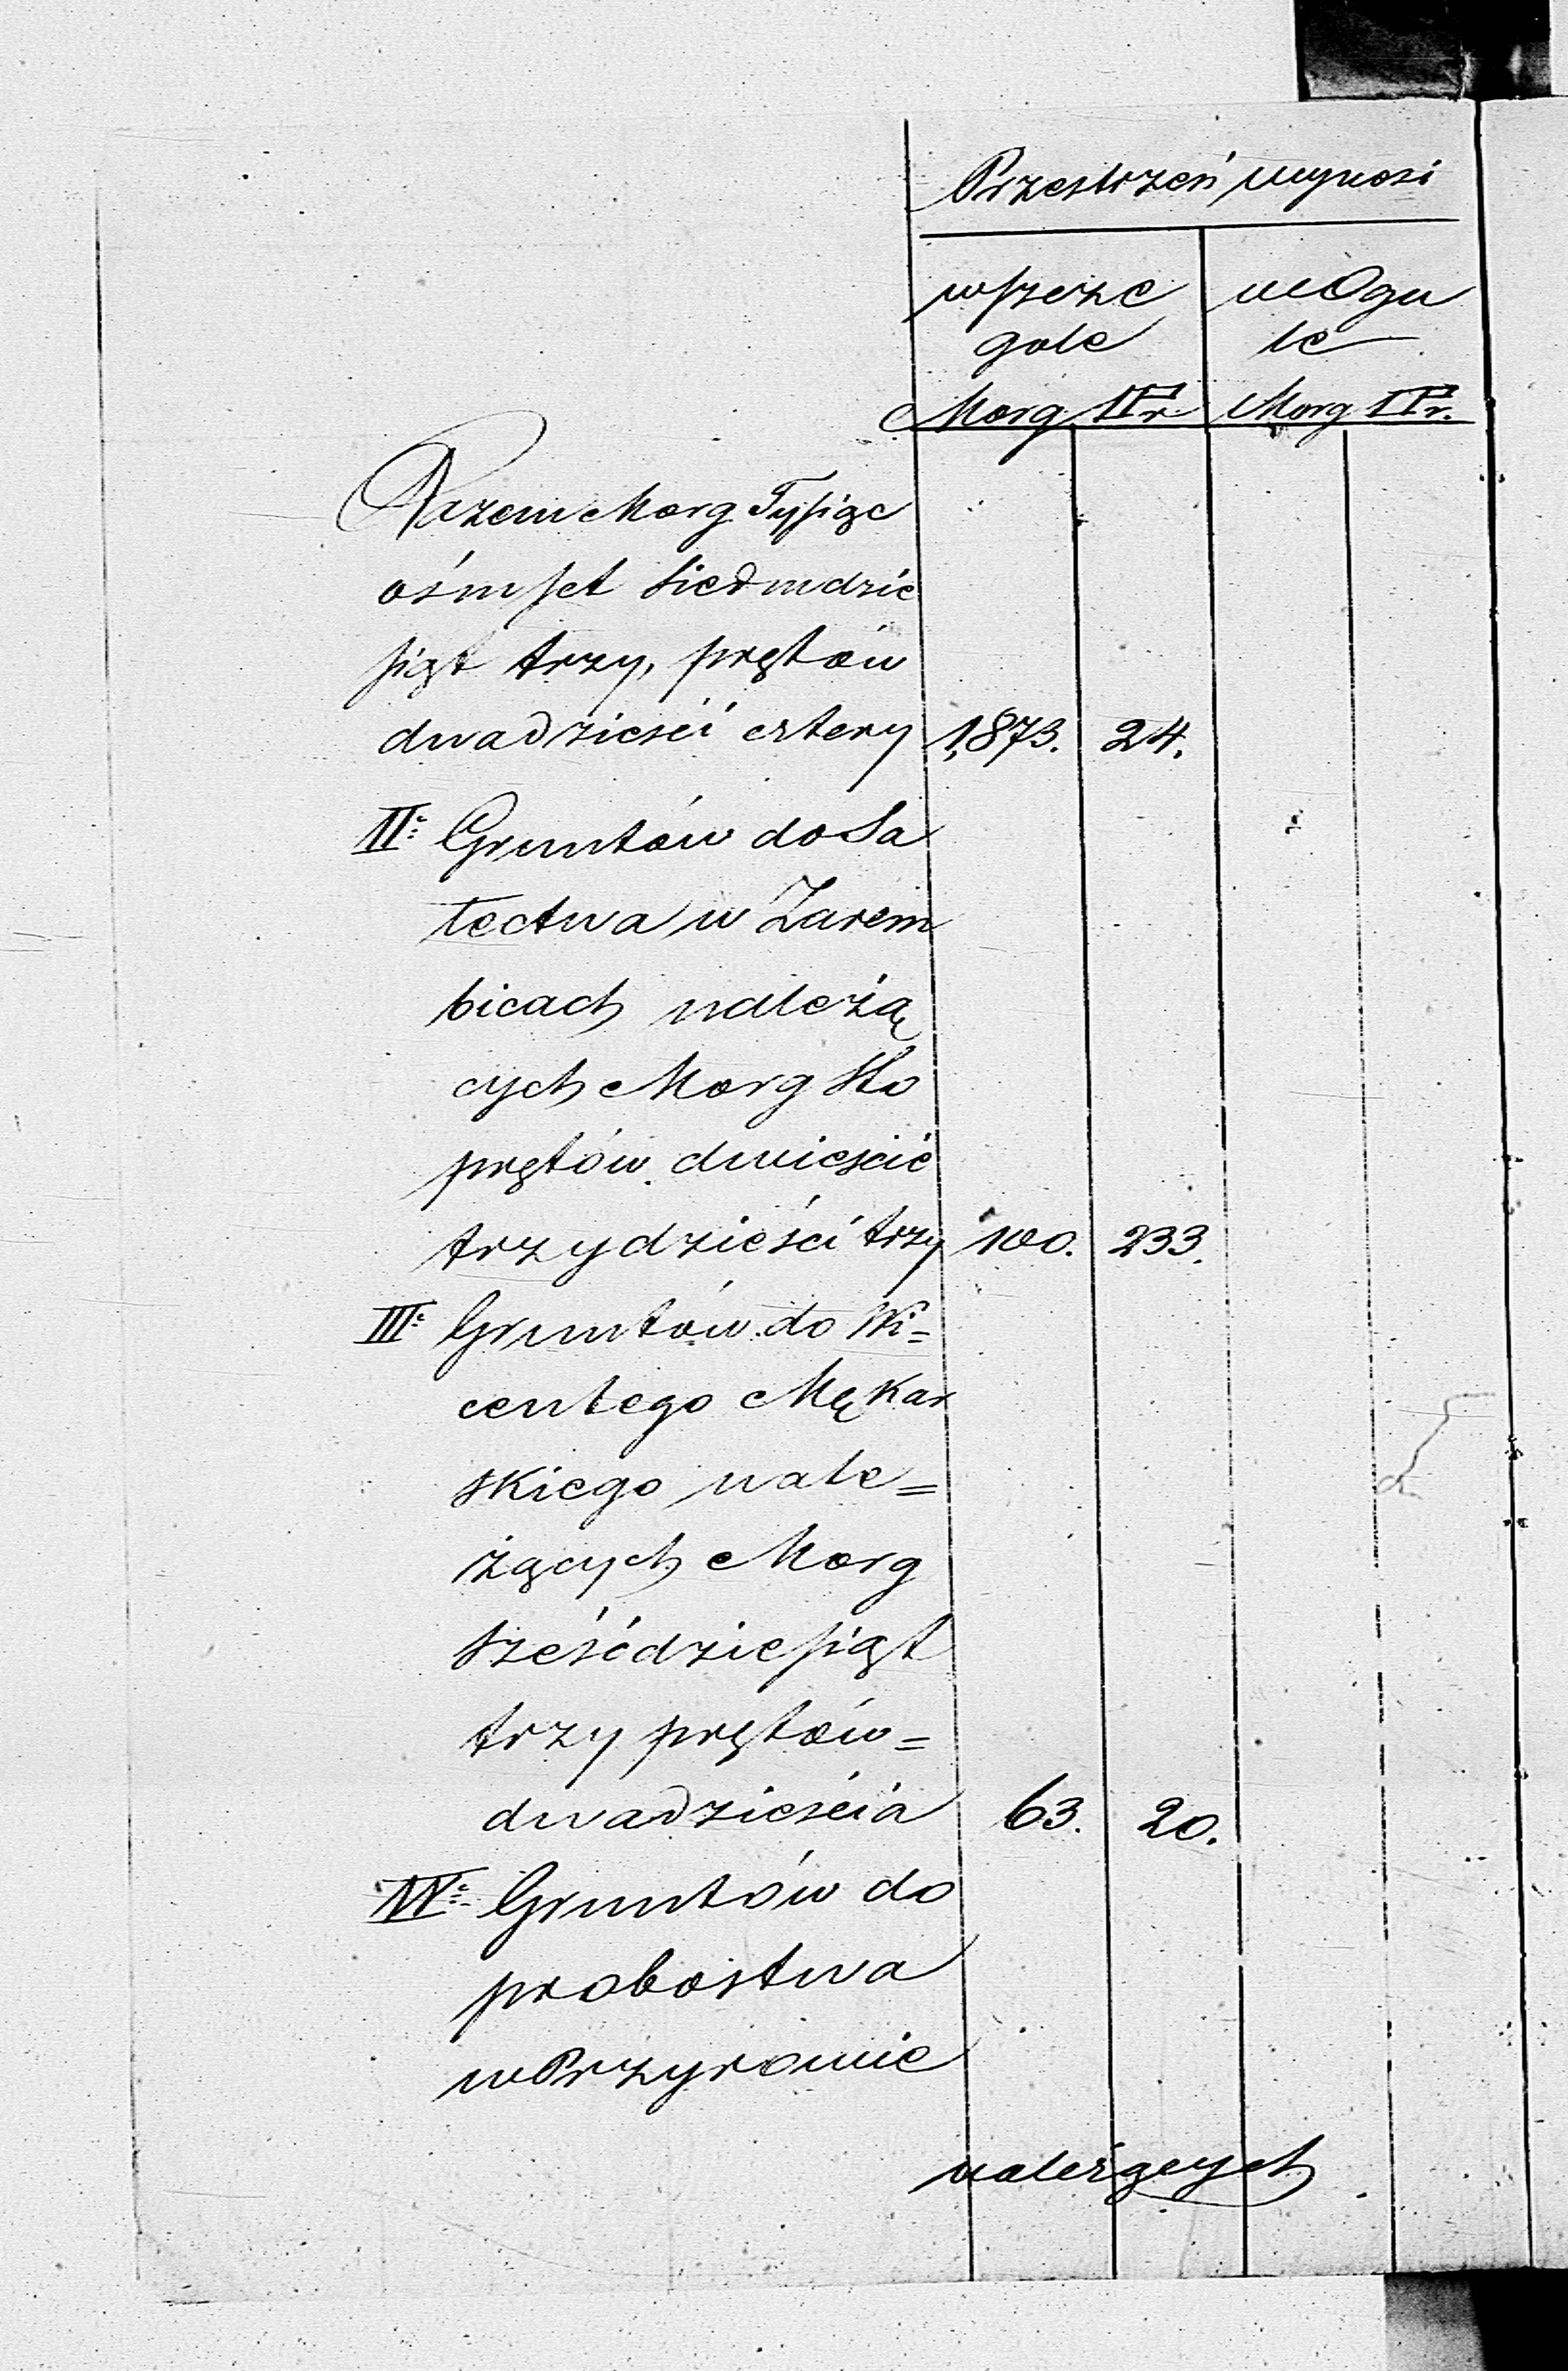 Przestrzeń wynosi
wszcze wOgu
gole le
Morg □Pr. Morg □Pr.
Razem Morg Tysiąc
ośmset siedmdzie
siąt trzy, prętów
dwadzieści cztery 1,873. 24.
II: Gruntów do So
łectwa w Zarem
bicach należą
cych Morg Sto
prętów dwieście
trzydzieści trzy 100. 233.
III: Gruntów do Wi=
centego Mękar
skiego nale=
żących Morg
sześćdziesiąt
trzy prętów=
dwadzieścia 63. 20.
IV: Gruntów do
probostwa
w Przyrowie
należących